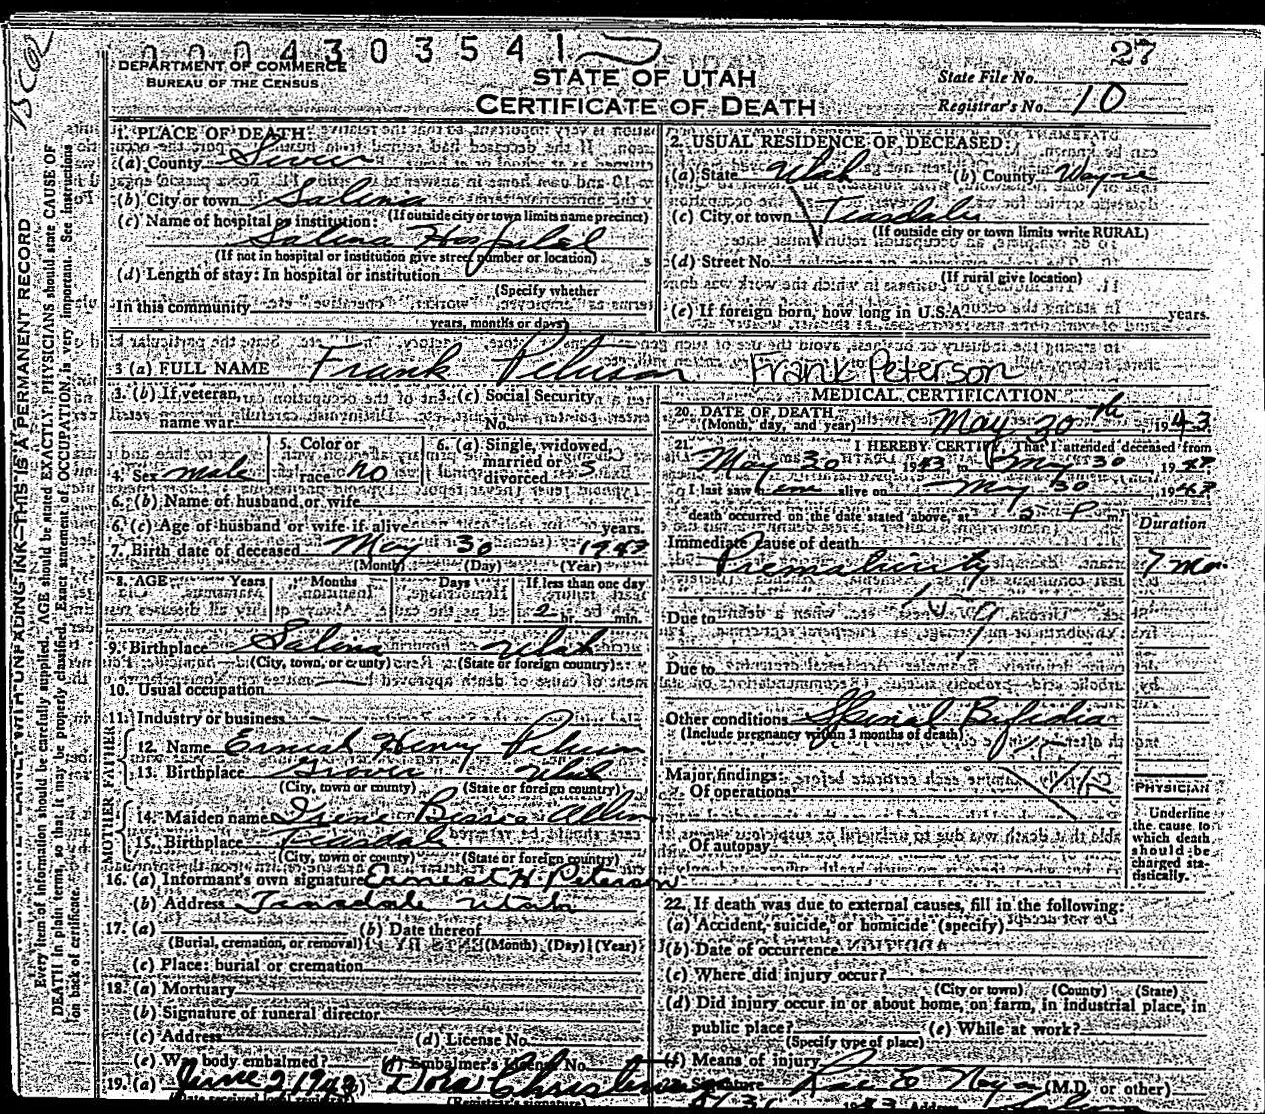 0004303541
27
DEPARTMENT OF COMMERCE
BUREAU OF THE CENSUS
STATE OF UTAH
CERTIFICATE OF DEATH
State File No.
Registrar's No. 10
1. PLACE OF DEATH:
(a) County Sevier
(b) City or town Salina
(If outside city or town limits name precinct)
(c) Name of hospital or institution:
Salina Hospital
(If not in hospital or institution give street number or location)
(d) Length of stay: In hospital or institution
(Specify whether
In this community
years, months or days)
2. USUAL RESIDENCE OF DECEASED:
(a) State Utah (b) County Wayne
(c) City or town Teasdale
(If outside city or town limits write RURAL)
(d) Street No.
(If rural give location)
(e) If foreign born, how long in U.S.A.? years.
3 (a) FULL NAME Frank Peterson Frank Peterson
3. (b) If veteran, name war
3. (c) Social Security No.
4. Sex male
5. Color or race
6. (a) Single, widowed married or divorced S
6. (b) Name of husband or wife
6. (c) Age of husband or wife if alive years.
7. Birth date of deceased May 30 1943
(Month) (Day) (Year)
8. AGE Years Months Days If less than one day
2 hr. min.
9. Birthplace Salina Utah
(City, town, or county) (State or foreign country)
10. Usual occupation
11. Industry or business
FATHER
12. Name Ernest Henry Peterson
13. Birthplace Grover Utah
(City, town or county) (State or foreign country)
MOTHER
14. Maiden name Irene Bessie Allen
15. Birthplace Teasdale
(City, town or county) (State or foreign country)
16. (a) Informant's own signature Ernest H. Peterson
(b) Address Teasdale Utah
17. (a) (b) Date thereof
(Burial, cremation, or removal) (Month) (Day) (Year)
(c) Place: burial or cremation
18. (a) Mortuary
(b) Signature of funeral director
(c) Address (d) License No.
(e) Was body embalmed? (f) Embalmer's License No.
19. (a) June 2 1943 Dora
MEDICAL CERTIFICATION
20. DATE OF DEATH
(Month, day, and year) May 30th 1943
21. I HEREBY CERTIFY That I attended deceased from
May 30 1943 to May 30 1943
I last saw him alive on May 30 1943
death occurred on the date stated above, at P m.
Duration
Immediate cause of death
Prematurity 7 mo.
Due to
Due to
Other conditions Spinal Bifidia
(Include pregnancy within 3 months of death)
Major findings:
Of operations
Of autopsy
PHYSICIAN
Underline the cause to which death should be charged statistically.
22. If death was due to external causes, fill in the following:
(a) Accident, suicide, or homicide (specify)
(b) Date of occurrence
(c) Where did injury occur?
(City or town) (County) (State)
(d) Did injury occur in or about home, on farm, in industrial place, in
public place? (e) While at work?
(Specify type of place)
(f) Means of injury
Signature Rae E. Noyes (M.D. or other)
THIS IS A PERMANENT RECORD
Every item of information should be carefully supplied. AGE should be stated EXACTLY. PHYSICIANS should state CAUSE OF
DEATH in plain terms, so that it may be properly classified. Exact statement of OCCUPATION is very important. See instructions
on back of certificate.